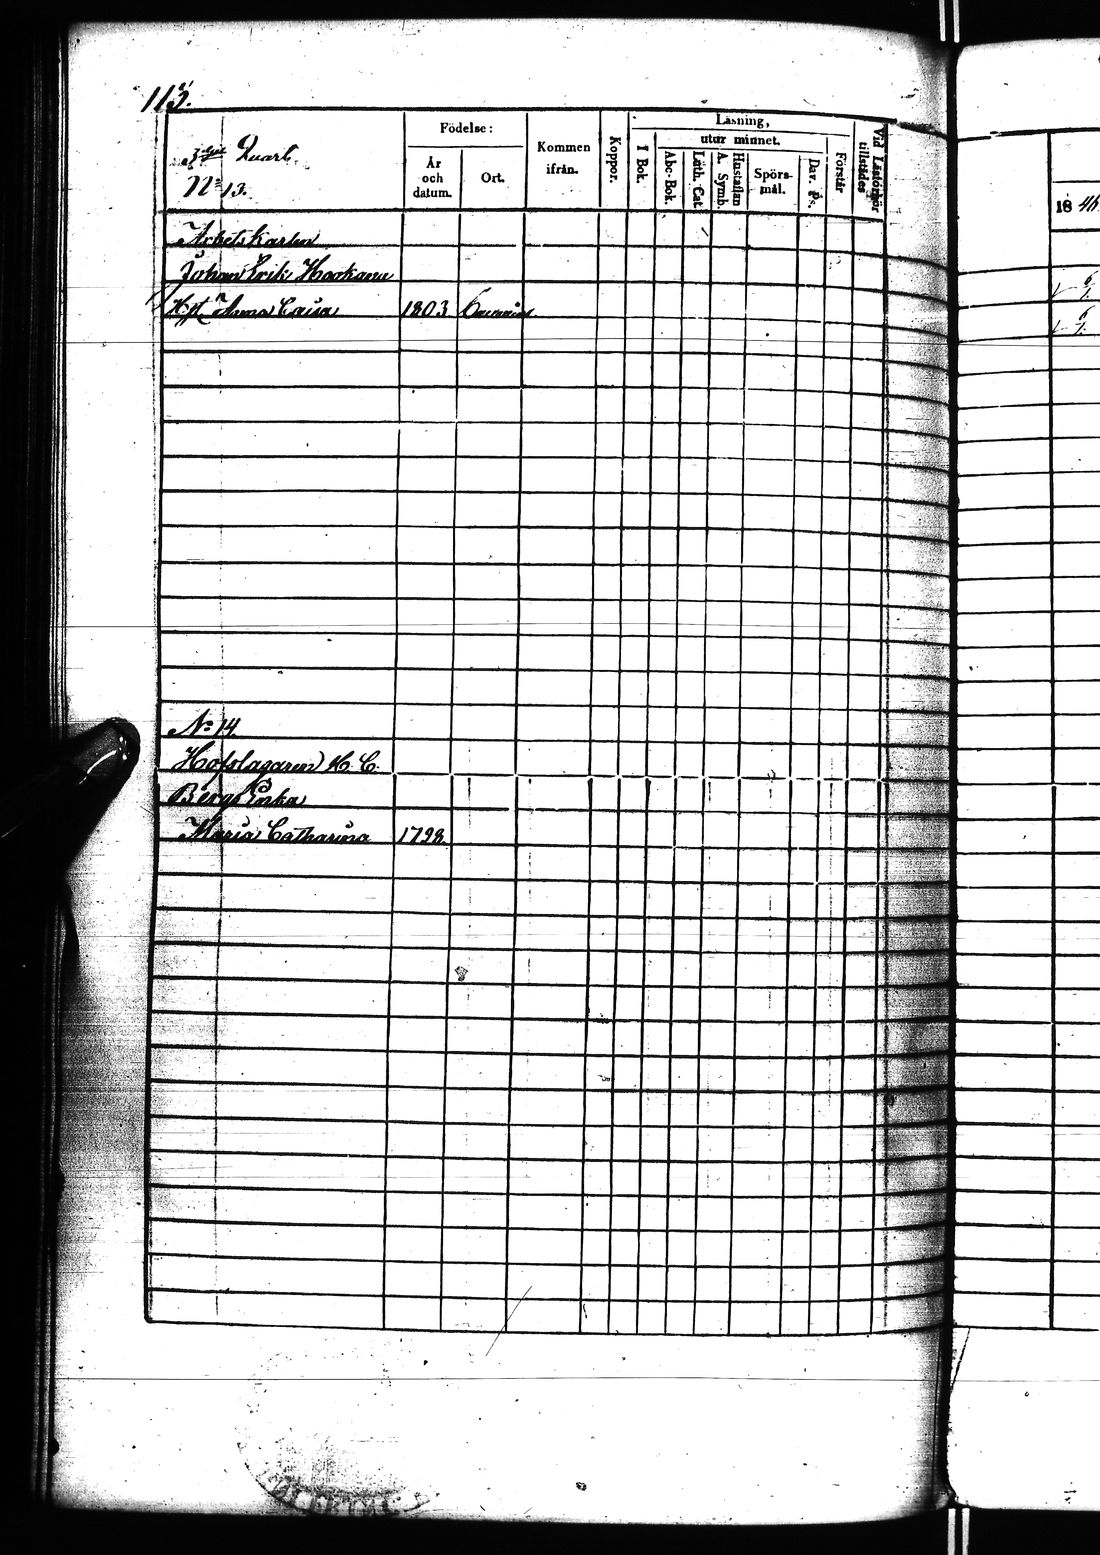 113.
Qvart.
N° 13.
Födelse:
År och datum.
Ort.
Kommen ifrån.
Koppor.
Läsning,
utur minnet.
I Bok.
Abc-Bok.
Luth. Cat.
A. Symb.
Hustaflan
Spörs-mål.
Dav. Ps.
Förstår
Vid Läsförhör tillstädes
1846
Arbets Karlen
Johan Erik
Anna Caisa 1803
N° 14
Hofslagaren H. C.
Bergs Enka
Maria Catharina 1798.